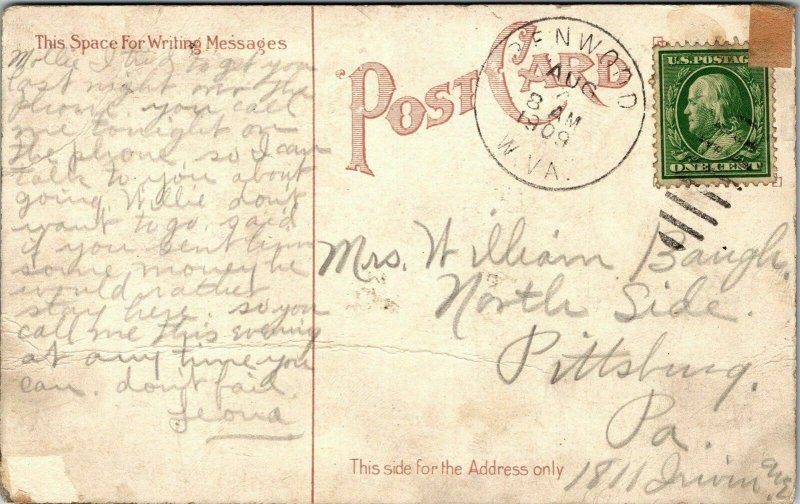 This Space For Writing Messages
Mollie I tried to get you
last night over the
phone. you call
me tonight on
the phone so I can
talk to you about
going. Willie don't
want to go. said
if you sent him
some money he
would rather
stay here. so you
call me this evening
at any time you
can. don't fail.
Leona
POST CARD
ENWOOD
AUG
8 AM
1909
W. VA.
U.S. POSTAGE
ONE CENT
Mrs. William Baugh.
North Side.
Pittsburg.
Pa.
1811 Irwin Ave
This side for the Address only